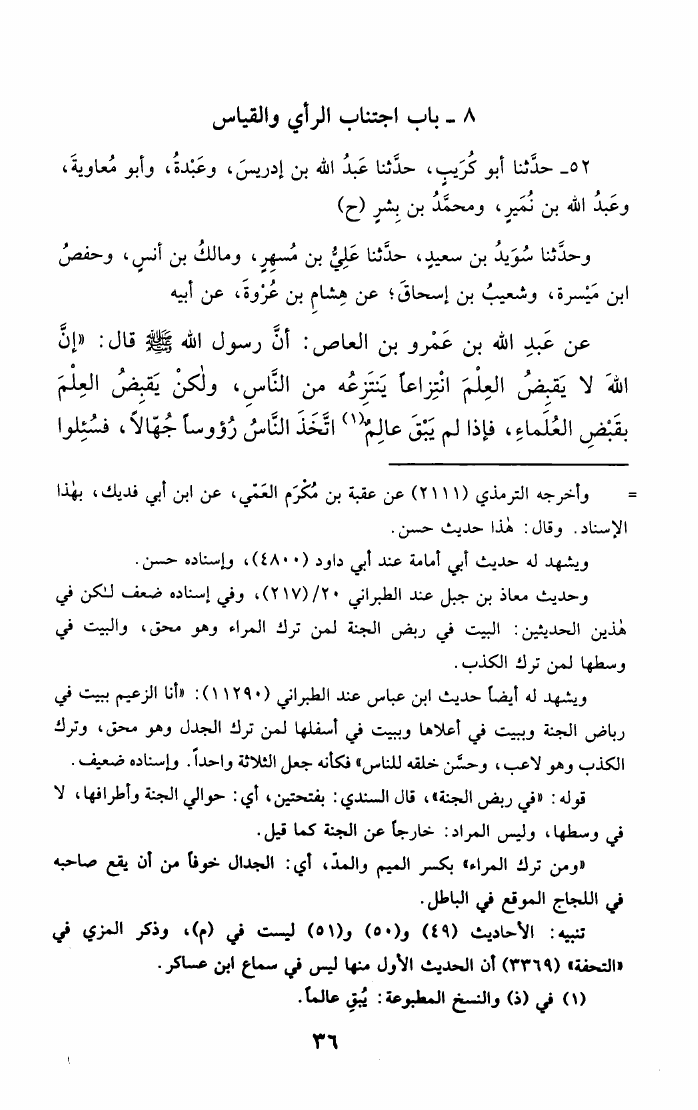 ٨ - باب اجتناب الرأي والقياس
٥٢- حدَّثنا أبو كُرَيبٍ، حدَّثنا عَبدُ الله بن إدريسَ، وعَبْدةُ، وأبو مُعاويةَ،
وعَبدُ الله بن نُمَيرٍ، ومحمَّدُ بن بِشرٍ (ح)
وحدَّثنا سُوَيدُ بن سعيدٍ، حدَّثنا عَلِيُّ بن مُسهِرٍ، ومالكُ بن أنسٍ، وحفصُ
ابن مَيْسرة، وشعيبُ بن إسحاقَ؛ عن هِشامِ بن عُرْوةَ، عن أبيه
عن عَبدِ الله بن عَمْرو بن العاص: أنَّ رسول الله ﷺ قال: «إنَّ
اللهَ لا يَقبِضُ العِلْمَ انْتِزاعاً يَنتَزِعُه من النَّاسِ، ولٰكنْ يَقبِضُ العِلْمَ
بقَبْضِ العُلَماءِ، فإذا لم يَبْقَ عالِمٌ(١) اتَّخَذَ النَّاسُ رُؤوساً جُهّالاً، فسُئِلوا
= وأخرجه الترمذي (٢١١١) عن عقبة بن مُكْرَم العَمّي، عن ابن أبي فديك، بهٰذا
الإسناد. وقال: هٰذا حديث حسن.
ويشهد له حديث أبي أمامة عند أبي داود (٤٨٠٠)، وإسناده حسن.
وحديث معاذ بن جبل عند الطبراني ٢٠/(٢١٧)، وفي إسناده ضعف لـٰكن في
هٰذين الحديثين: البيت في ربض الجنة لمن ترك المراء وهو محق، والبيت في
وسطها لمن ترك الكذب.
ويشهد له أيضاً حديث ابن عباس عند الطبراني (١١٢٩٠): «أنا الزعيم ببيت في
رباض الجنة وببيت في أعلاها وببيت في أسفلها لمن ترك الجدل وهو محق، وترك
الكذب وهو لاعب، وحسَّن خلقه للناس» فكأنه جعل الثلاثة واحداً. وإسناده ضعيف.
قوله: «في ربض الجنة»، قال السندي: بفتحتين، أي: حوالي الجنة وأطرافها، لا
في وسطها، وليس المراد: خارجاً عن الجنة كما قيل.
«ومن ترك المراء» بكسر الميم والمدّ، أي: الجدال خوفاً من أن يقع صاحبه
في اللجاج الموقع في الباطل.
تنبيه: الأحاديث (٤٩) و(٥٠) و(٥١) ليست في (م)، وذكر المزي في
«التحفة» (٣٣٦٩) أن الحديث الأول منها ليس في سماع ابن عساكر.
(١) في (ذ) والنسخ المطبوعة: يُبقِ عالماً.
٣٦